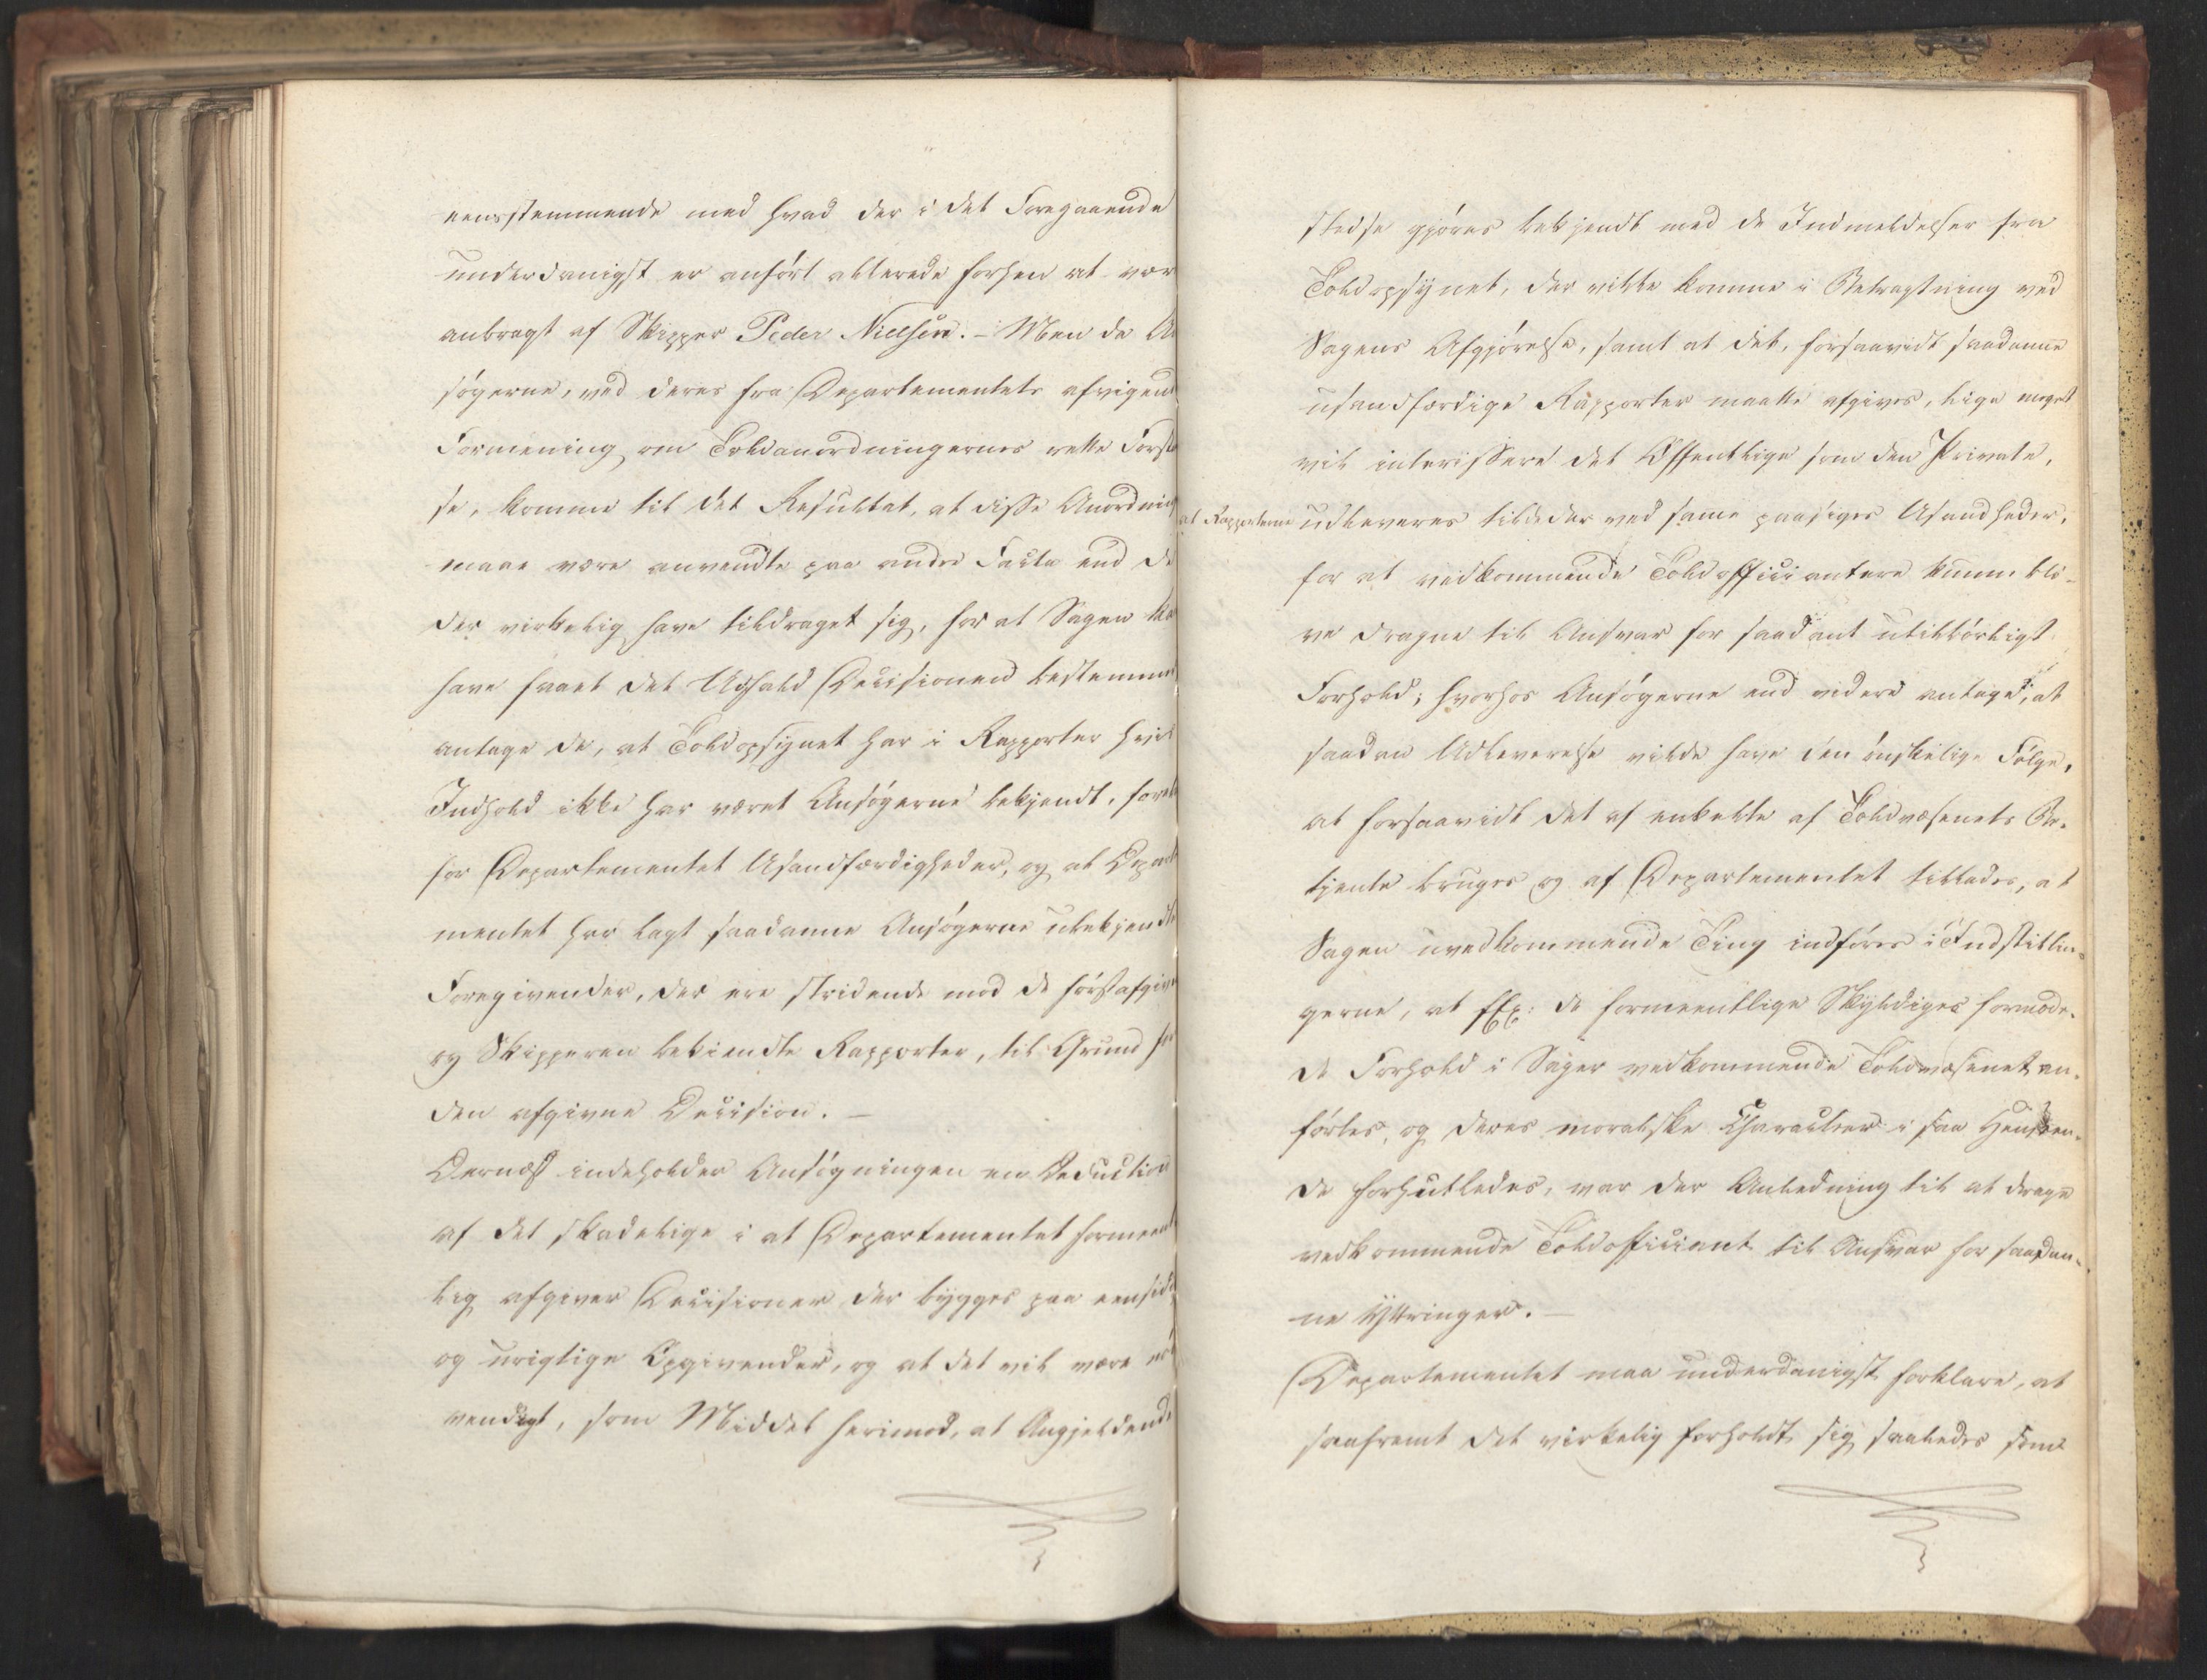 eensstemmende med hvad der i det Foregaaende
underdanigst er anført allerede forhen at vær
anbragt af Skipper Peder Nielsen. – Men da A
søgerne, ved deres fra Departementets afvigend
Formening om Toldanordningernes rette Forst
se, komme til det Resultat, at disse Anordning
maae være anvendte paa andre Facta end de
der virkelig have tildraget sig, for at Sagen ku
have faaet det Udfald Decisionen bestemmer
antage de, at Toldopsynet har i Rapporter hvis
Indhold ikke har været Ansøgerne bekjendt, foreb
for Departementet Usandfærdigheder, og at Depart
mentet har lagt saadanne Ansøgerne ubekjendte
Foregivender, der ere stridende mod deførstafgivn
og Skipperen bekiendte Rapporter, til Grund for
den afgivne Decision. –
Dernæst indeholder Ansøgningen en Deduction
af det skadelige i at Departementet formeent
lig afgiver Decisioner der bygges paa eensid
og urigtige Opgivender, og at det vil være nød
vendigt, som Middel herimod, at Angjeldende
stedse gjøres bekjendt med de Indmeldelser fra
Toldopsynet, der ville komme i Betragtning ved
Sagens Afgjørelse, samt at det, forsaavidt saadanne
usandfærdige Rapporter maatte afgives, lige meget
vil interessere det Offentlige som den Private,
at Rapporterne udleveres tildeder ved samme paasiges Usandheder,
for at vedkommende Toldofficiantere kunne bli-
ve dragne til Ansvar for saadant utilbørligt
Forhold; hvorhos Ansøgerne end videre antage, at
saadan Udleverelse vilde have den ønskelige Følge,
at forsaavidt det af enkelte af Toldvæsenets Be-
tjente bruges og af Departementet tillades, at
Sagen uvedkommende Ting indføres i Indstillin-
gerne, at f Ex: de formeentlige Skyldiges formode-
de Forhold i Sager vedkommende Toldvæsenet an-
førtes, og deres moralske Characteer i saa Henseen-
de forhutledes, var der Anledning til at drage
vedkommende Toldofficiant til Ansvar for saadan-
ne Yttringer. –
Departementet maa underdanigst forklare, at
saafremt det virkelig forholdt sig saaledes som